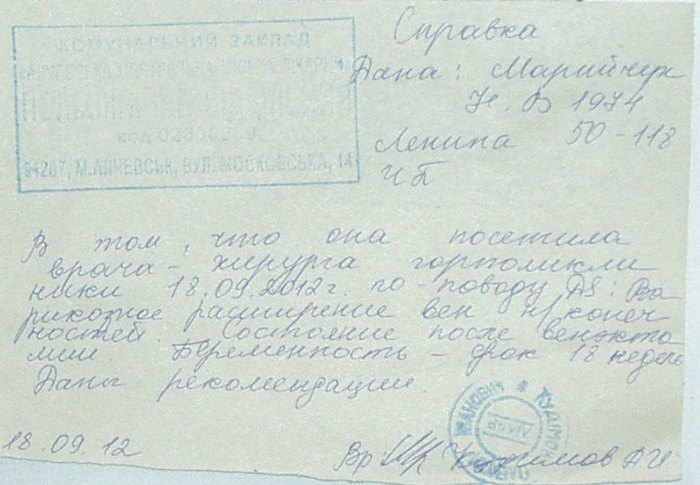 КОМУНАЛЬНИЙ ЗАКЛАД
94207, М.АЛЧЕВСЬК, ВУЛ. МОСКОВСЬКА, 14
Справка
Дана: Марийчук
Н. В 1974
Ленина 50-118
ЧП
В том, что она посетила
врача-хирурга горполикли
ники 18.09.2012г. по поводу DS: Ва
рикозное расширение вен н/конеч
ностей. Состояние после венэкто
мии. Беременность – срок 18 недель
Даны рекомендации.
18.09.12
Вр